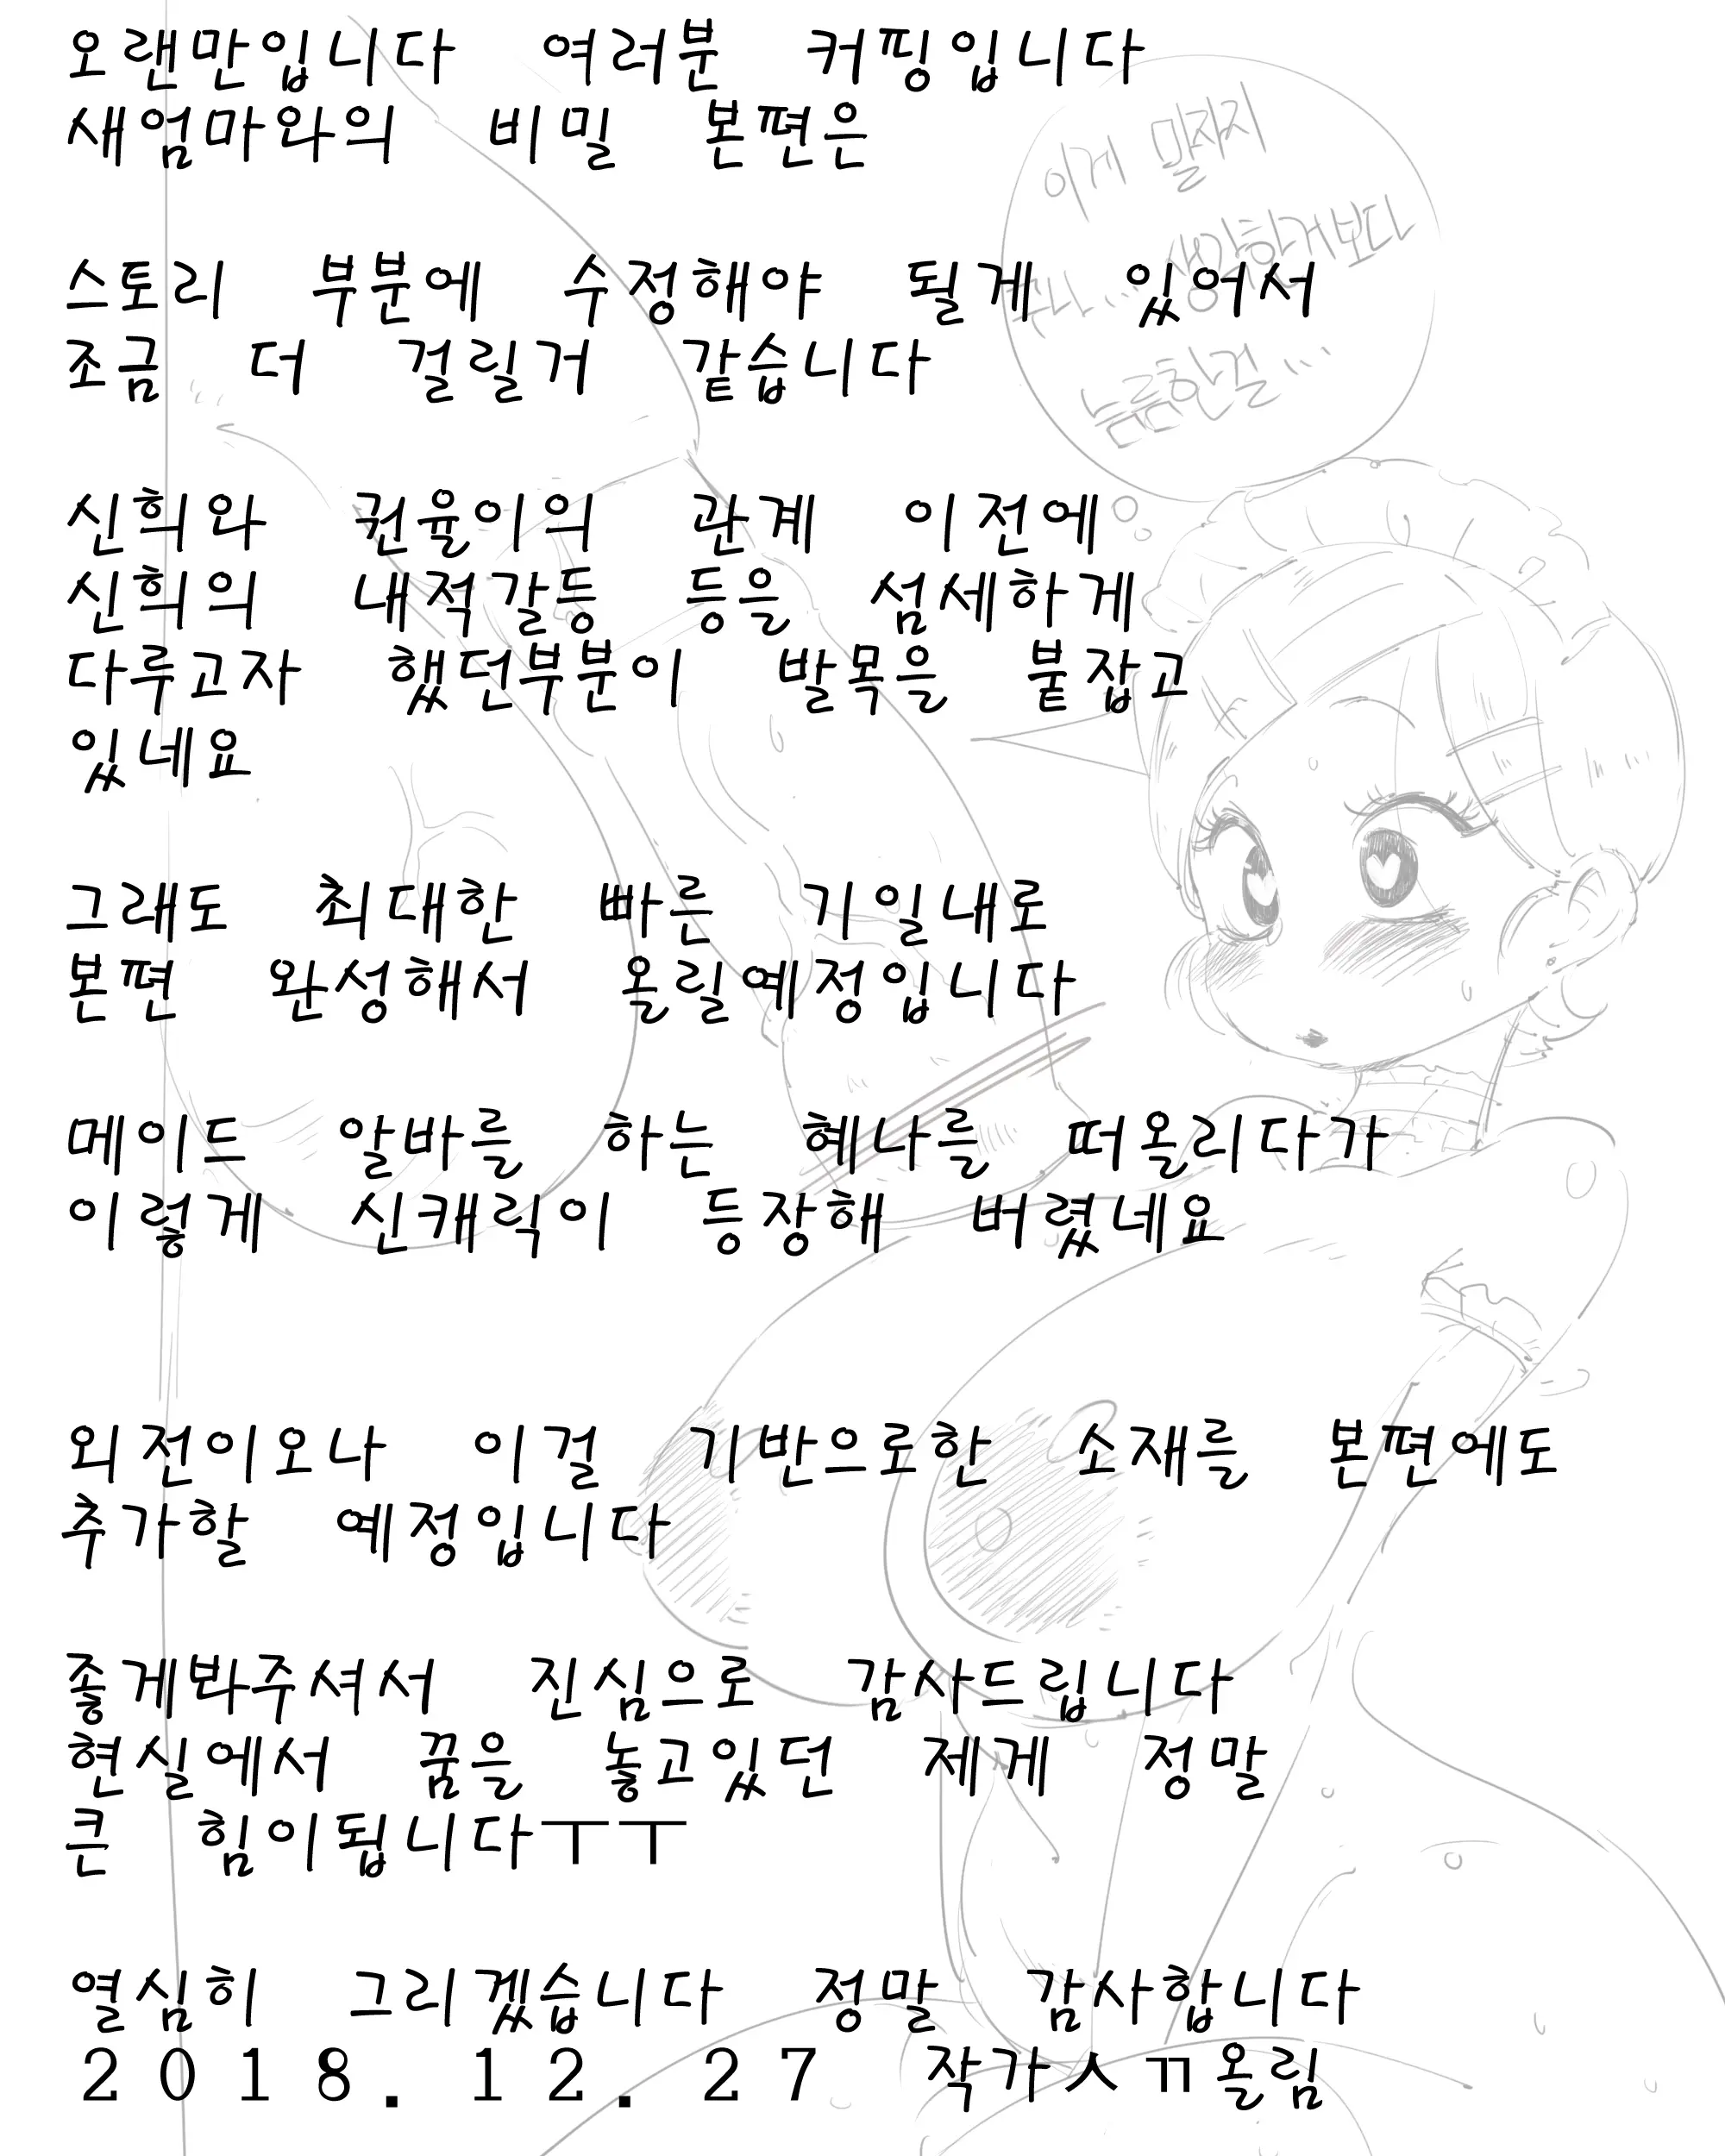 오랜만입니다 여러분 커핑입니다
새엄마와의 비밀 본편은
스토리 부분에 수정해야 될게 있어서
조금 더 걸릴거 같습니다
신희와 권율이의 관계 이전에
신희의 내적갈등 등을 섬세하게
다루고자 했던부분이 발목을 붙잡고
있네요
그래도 최대한 빠른 기일내로
본편 완성해서 올릴예정입니다
메이드 알바를 하는 혜나를 떠올리다가
이렇게 신캐릭이 등장해 버렸네요
외전이오나 이걸 기반으로한 소재를 본편에도
추가할 예정입니다
좋게봐주셔서 진심으로 감사드립니다
현실에서 꿈을 놓고있던 제게 정말
큰 힘이됩니다ㅜㅜ
열심히 그리겠습니다 정말 감사합니다
2018.12.27 작가ㅅㄲ올림
이게 말자지
생각한거보다
늠름한걸...